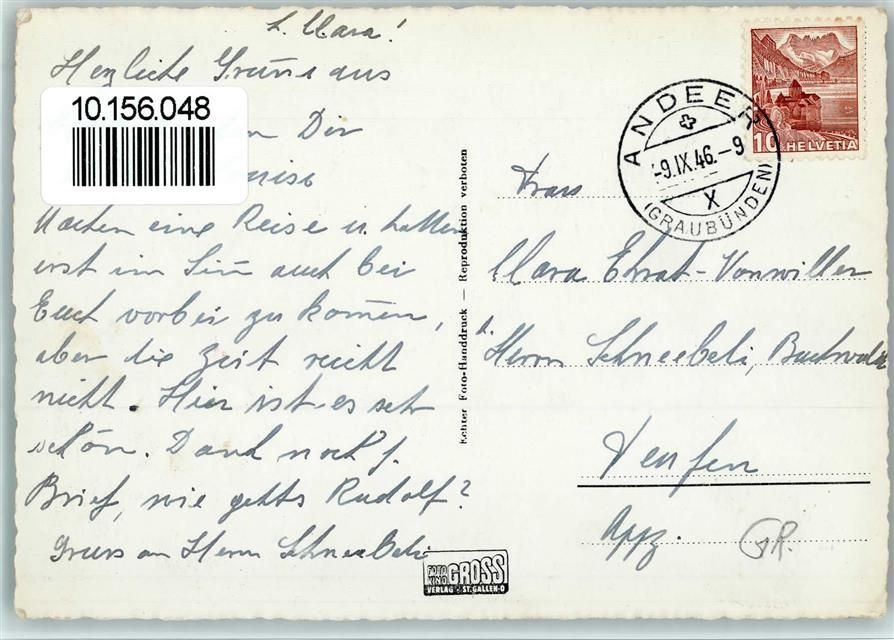 L. Clara!
Herzliche Grüsse aus
10.156.048
Dir
Machen eine Reise u. hatten
erst im Sinn auch bei
Euch vorbei zu kommen,
aber die Zeit reicht
nicht. Hier ist es sehr
schön. Dank noch f.
Brief, wie gehts Rudolf?
Gruss an Herrn Schneebeli
Echter Foto-Handdruck — Reproduktion verboten
FOTO KINO GROSS
VERLAG ST.GALLEN-O
ANDEER
-9.IX.46.-9
X
(GRAUBÜNDEN)
10 HELVETIA
Frau
Clara Ehrat-Vonwiller
Herrn Schneebeli, Buchwald
Teufen
Appz.
GR.